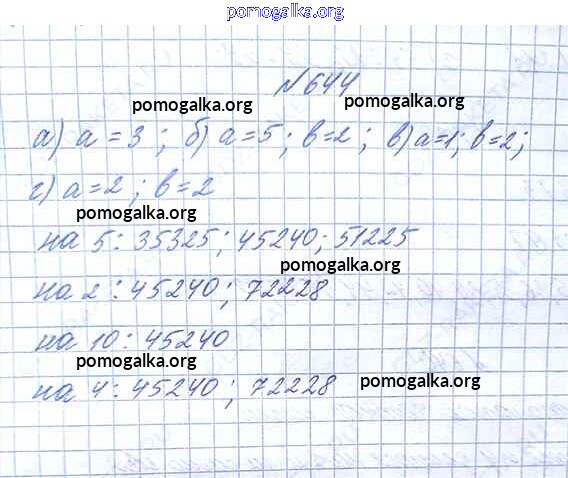 pomogalka.org
№644
pomogalka.org pomogalka.org
а) a=3; б) a=5; в=2; в) a=1; в=2;
г) a=2; в=2
pomogalka.org
на 5: 35325; 45240; 51225
pomogalka.org
на 2: 45240; 72228
на 10: 45240
pomogalka.org
на 4: 45240; 72228 pomogalka.org